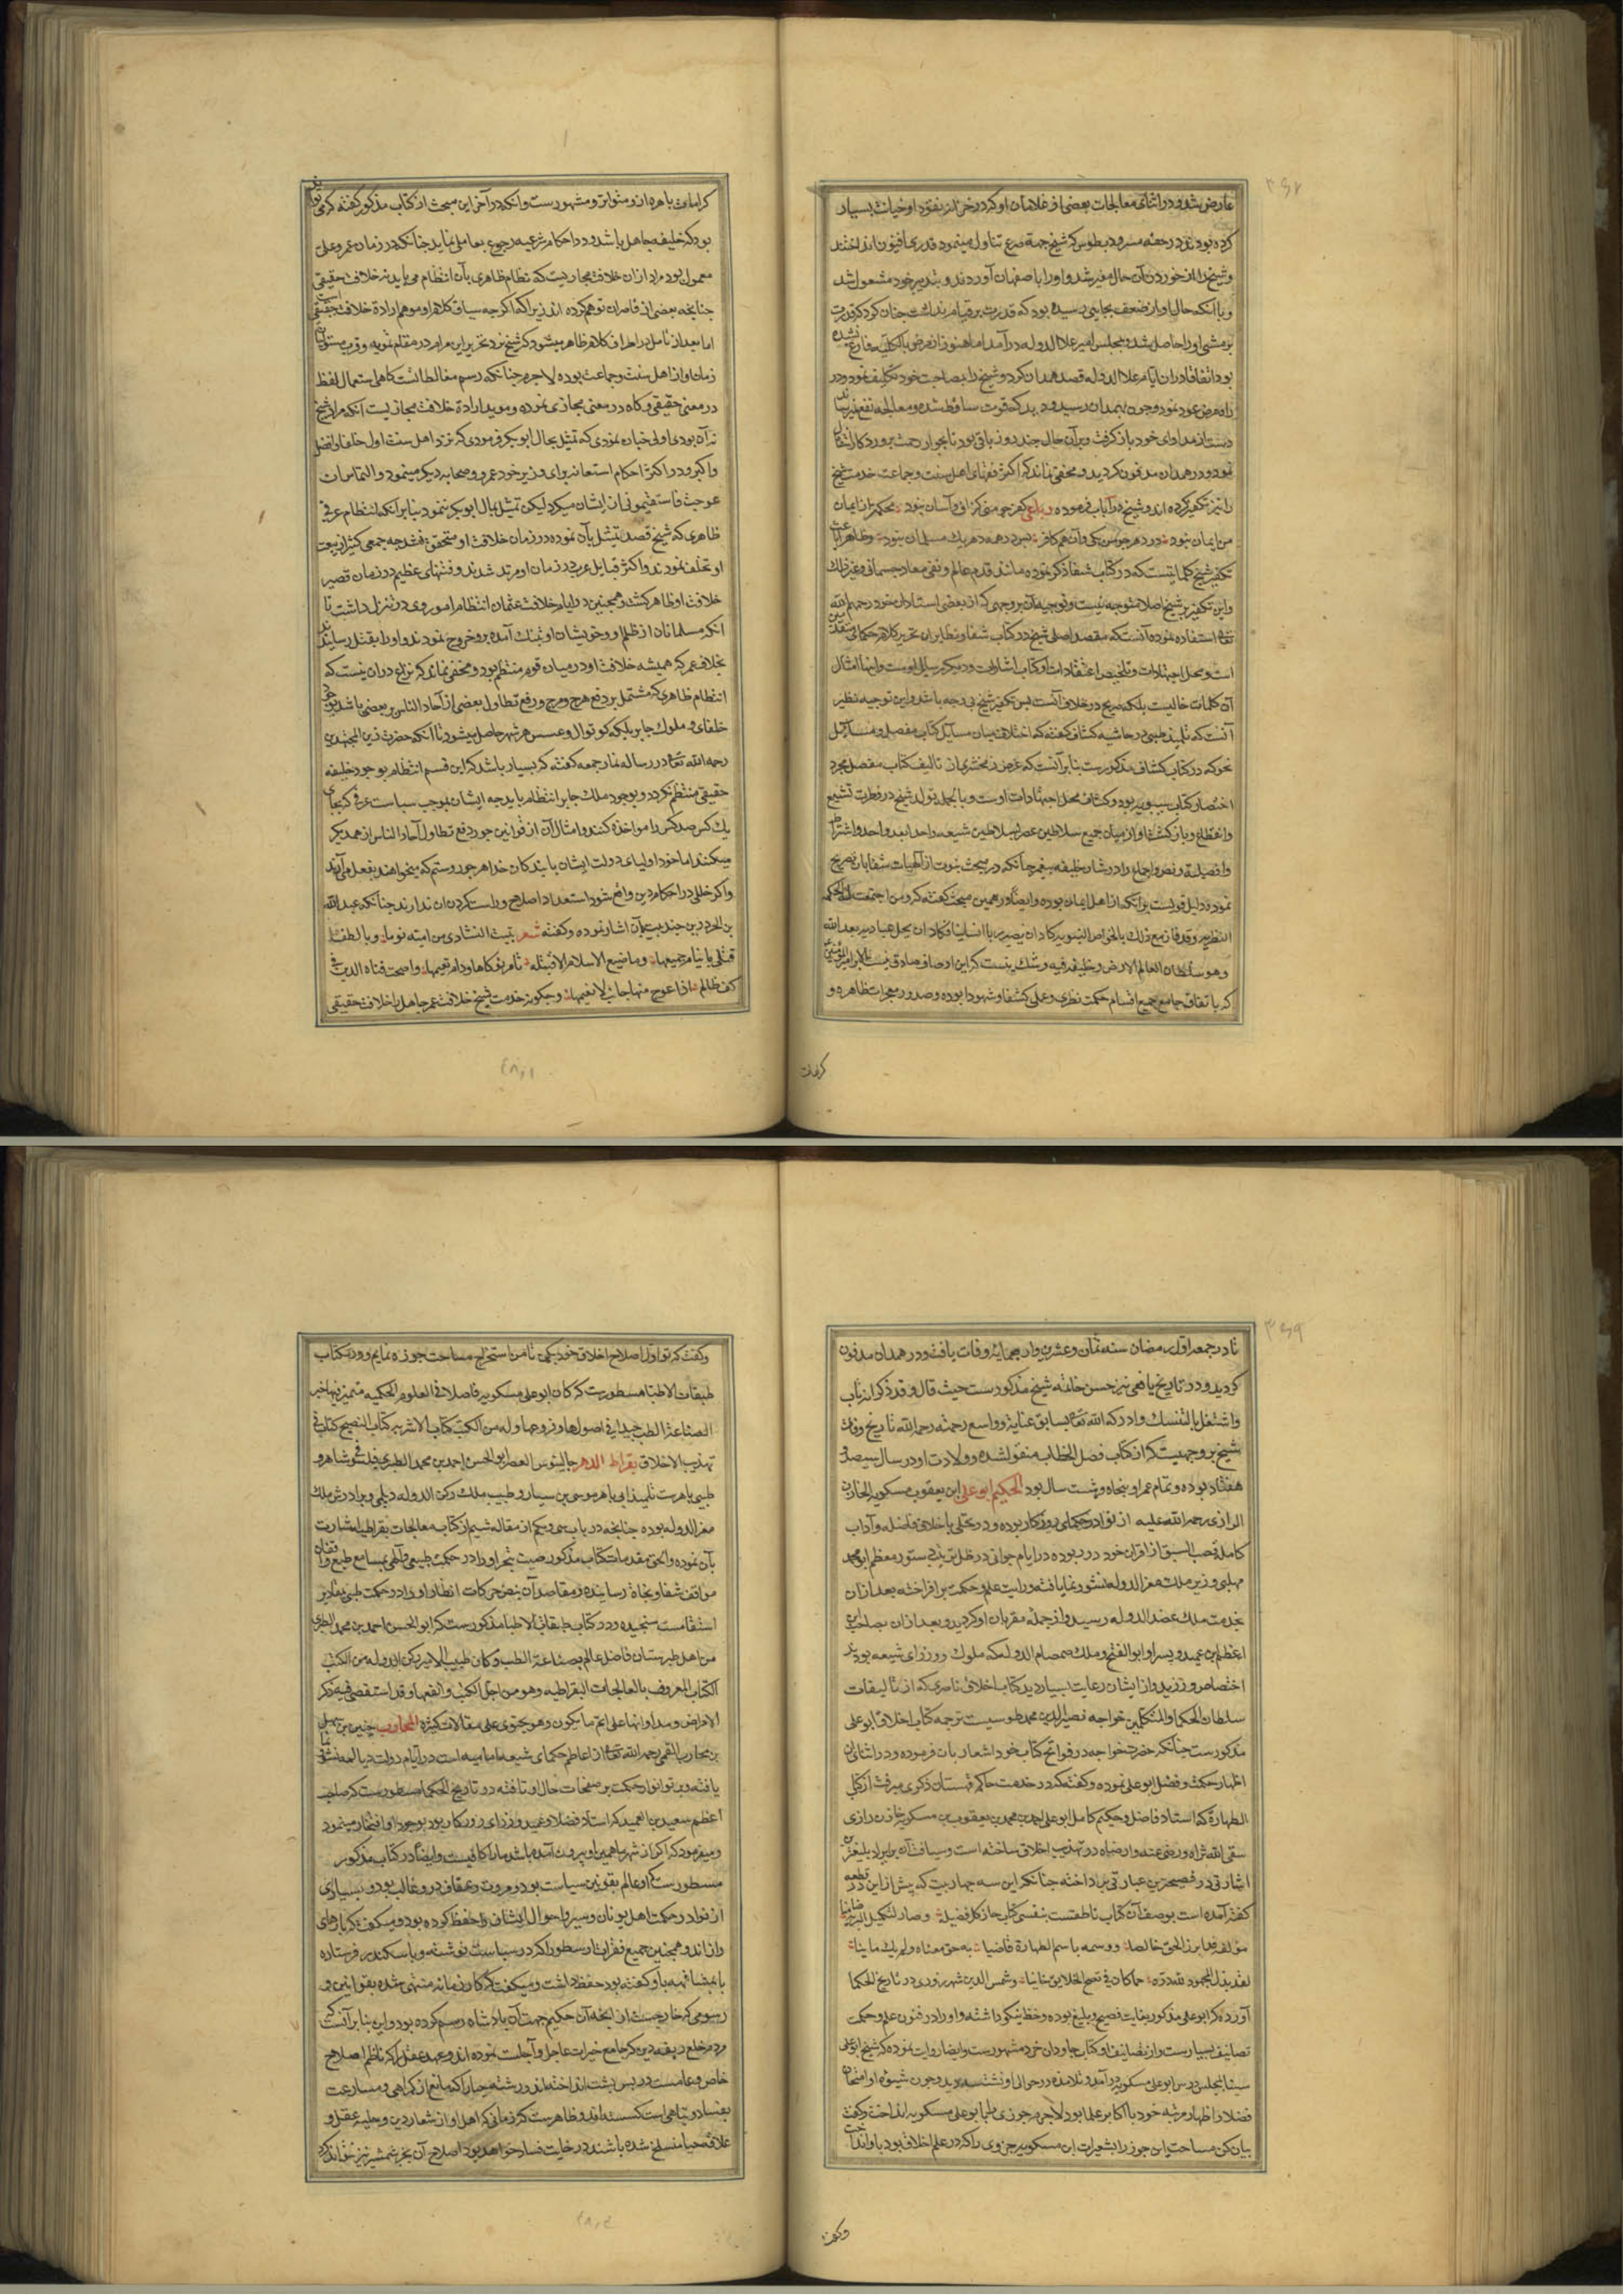 عارض شد و در اثنای معالجات بعضی از غلامان او که در خزانه نقود او خیانت بسیار
کرده بودند در حقه مسرودیطوس که شیخ جهة صرع تناول مینمود قدری افیون انداختند
و شیخ را از خوردن آن حال متغیر شد و او را باصفهان آوردند و بتدبیر خود مشغول شد
و با آنکه حال او از ضعف بجایی رسیده بود که قدرت بر قیام نداشت چنان کرد که قدرت
بر مشی او را حاصل شد و بمجلس امیر علاء الدوله در آمد اما هنوز از مرض بالکلیه فارغ نشده
بود اتفاقا در ان ایام علاء الدوله قصد همدان کرد و شیخ را بمصاحبت خود تکلیف نمود و در
راه مرض عود نمود و چون بهمدان رسید و دید که قوت ساقط شده و معالجه نفع نمیرساند
دست از مداوای خود باز گرفت و بر آن حال چند روز باقی بود تا بجوار رحمت پروردگار انتقال
نمود و در همدان مدفون گردید و مخفی نماند که اکثر فقهای اهل سنت و جماعت خدمت شیخ
را نیز تکفیر کرده اند و شیخ در آن باب فرموده رباعی کفر چو منی گزاف و آسان نبود محکمتر از ایمان
من ایمان نبود در دهر چو من یکی و آن هم کافر پس در همه دهر یک مسلمان نبود و ظاهرا باعث
تکفیر شیخ کلماتیست که در کتاب شفا ذکر نموده مانند قدم عالم و نفی معاد جسمانی و غیر ذلک
و این تکفیر بر شیخ اصلا متوجه نیست و توجیه آن بر وجهی که از بعضی استادان خود رحمهم الله
تعالی استفاده نموده آنست که مقصد اصلی شیخ در کتاب شفا و نظایر ان تحریر کلام حکمای متقدمین
است و محل اجتهادات و تلخیص اعتقادات او کتاب اشارات و دیگر رسایل اوست و اینها امثال
آن کلمات خالیست بلکه صریح در خلاف آنست پس تکفیر شیخ بی وجه باشد و این توجیه نظیر
آنست که تلمیذ طیبی در حاشیه کشاف گفته که اختلاف میان مسایل کتاب مفصل و مسایل
نحو که در کتاب کشاف مذکورست بنابر آنست که غرض زمخشری از تالیف کتاب مفصل مجرد
اختصار کتاب سیبویه بوده و کشاف محل اجتهادات اوست و بالجمله تولد شیخ در فطرت تشیع
و انفطام و باز گشت او از میان جمیع سلاطین عصر بسلاطین شیعه واحدا بعد واحد و اشتراط
و افضلیة و نص و اجماع را در شان خلیفه پیغمبر چنانکه در مبحث نبوت از الهیات شفا بان تصریح
نموده دلیل قویست بر آنکه از اهل ایمان بوده و ایضا در همین مبحث گفته که و من اجتمعت له الحکمة
النظریه و قد فاز مع ذلک بالخواص النبویه کاد ان یصیر ربا انسانیا و کاد ان یحل عبادته بعد الله
و هو سلطان العالم الارضی و خلیفه فیه و شک نیست که این اوصاف صادق نیست الا بر امیر المؤمنین
که باتفاق جامع جمیع اقسام حکمت نظری و عملی کشفا و شهودا بوده و صدور معجزات ظاهره و
کرامات
کرامات باهره ازو متواتر و مشهورست و آنکه در آخر این مبحث از کتاب مذکور گفته که می تواند
بود که خلیفه جاهل باشد و در احکام شرعیه رجوع بعاملی نماید چنانکه در زمان عمر و علی
معمول بود مراد ازان خلافت مجازیست که نظام ظاهری بآن انتظام می یابد نه خلافت حقیقی
چنانچه بعضی از قاصران توهم کرده اند زیرا که اگر چه سیاق کلام او موهم ارادة خلافت حقیقی است
اما بعد از تامل در اطراف کلام ظاهر میشود که شیخ نزد تحریر این مرام در مقام تمویه و ترس مستوران
زمان و از اهل سنت و جماعت بوده لاجرم چنانکه رسم مغالطانست گاهی استعمال لفظ
در معنی حقیقی و گاه در معنی مجازی نموده و موید ارادة خلافت مجازیست آنکه مراد شیخ
نه آن بودی اولی چنان نمودی که تمثیل بحال ابوبکر فرمودی که نزد اهل سنت اول خلفا و افضل
و اکبر و در اکثر احکام استعانه برای وزیر خود عمر و صحابه دیگر مینمود و التماس ان
عوجت فاستقیمونی از ایشان میکرد لیکن تمثیل بحال ابوبکر ننمود بنابر آنکه انتظام عرفی
ظاهری که شیخ قصد تمثیل بآن نموده در زمان خلافت او متحقق نشد چه جمعی کثیر از بیعت
او تخلف نمودند و اکثر قبایل عرب در زمان او مرتد شدند و فتنهای عظیم در زمان قصیر
خلافت او ظاهر گشت و همچنین در ایام خلافت عثمان انتظام امور روی در تنزل داشت تا
انکه مسلمانان از ظلم او و خویشان او بتنگ آمده برو خروج نمودند و او را بقتل رسانیدند
بخلاف عمر که همیشه خلافت او در میان قوم منتظم بود و مخفی نماند که نزاع در ان نیست که
انتظام ظاهری که مشتمل بر دفع هرج و مرج و رفع تطاول بعضی از آحاد الناس بر بعضی باشد بوجود
خلفای و ملوک جابر بلکه کوتوال و عسس هر شهر حاصل میشود تا آنکه حضرت زین المجتهدین
رحمه الله تعالی در رساله نماز جمعه گفته که بسیار باشد که این قسم انتظام بوجود خلیفه
حقیقی منتظم نگردد و بوجود ملک جابر انتظام یابد چه ایشان بموجب سیاست عرفی که بجای
یک کس صد کس را مواخذه کنند و امثال آن از قوانین جور دفع تطاول آحاد الناس از همدیگر
میکنند اما خود اولیای دولت ایشان با بندگان خدا هر جور و ستم که میخواهند بفعل می آرند
و اگر خللی در احکام دین واقع شود استعداد اصلاح و راست کردن ان ندارند چنانکه عبد الله
بن الحر درین چند بیت بآن اشار نموده و گفته شعر تبیت النشاوی من امیة نوما و بالطف
قتلی ما ینام حمیمها و ما ضیع الاسلام الا قبیله تامر نوکاها و دام نعیمها و اضحت قناة الدین فی
کف ظالم اذا اعوج منها جانب لا یقیمها و چگونه خدمت شیخ خلافت عمر جاهل را خلافت حقیقی
تا در جمعه اول رمضان سنه ثمان و عشرین و اربعمایه وفات یافت و در همدان مدفون
گردید و در تاریخ یافعی نیز حسن خاتمه شیخ مذکورست حیث قال و قد ذکر انه تاب
و اشتغل بالتنسک و ادرکه الله تعالی بسابق عنایته و واسع رحمته رحمه الله تاریخ وفات
شیخ بر وجهیست که از کتاب فصل الخطاب منقول شده و ولادت او در سال سیصد و
هفتاد بوده و تمام عمر او پنجاه و هشت سال بود الحکیم ابو علی ابن یعقوب مسکویه الخازن
الرازی رحمة الله علیه از نوادر حکمای روزگار بوده و در تحلی باخلاق فاضله و آداب
کامله قصب السبق از اقران خود در ربوده در ایام جوانی در ظل تربیت دستور معظم ابو محمد
مهلبی وزیر ملک معز الدوله نشو و نما یافته و رایت علم و حکمت بر افراخته بعد ازان
بخدمت ملک عضد الدوله رسید و از جمله مقربان او گردید و بعد ازان بصاحب
اعظم ابن عمید و پسر او ابو الفتح و ملک صمصام الدوله که ملوک و وزرای شیعه بودند
اختصاص ورزید و از ایشان رعایت بسیار دید کتاب اخلاق ناصری که از تالیفات
سلطان الحکما و المتکلمین خواجه نصیر الدین محمد طوسیست ترجمه کتاب اخلاق ابو علی
مذکورست چنانکه حضرت خواجه در فواتح کتاب خود اشعار بان فرموده و در اثنای آن
اظهار حکمت و فضل ابو علی نموده و گفته که در خدمت حاکم قهستان ذکری میرفت از کتاب
الطهارة که استاد فاضل و حکیم کامل ابو علی احمد بن محمد بن یعقوب بن مسکویه خازن رازی
سقی الله ثراه و رضی عنه و ارضاه در تهذیب اخلاق ساخته است و سیاقت آن بر ایراد بلیغترین
اشارتی در فصیحترین عبارتی پرداخته چنانکه این سه چهار بیت که پیش ازین در قطعه
گفته آمده است بوصف آن کتاب ناطقست بنفسی کتاب حاز کل فضیلة و صار لتکمیل البریه ضامنا
مؤلفه قد ابرز الحق خالصا و وسمه باسم الطهارة قاضیا به حق معناه و لم یک مائنا
لقد بذل المجهود لله دره فما کان فی نصح الخلایق خائنا و شمس الدین شهرزوری در تاریخ الحکما
آورده که ابو علی مذکور بغایت فصیح و بلیغ بوده و خط نیکو داشته و او را در فنون علم و حکمت
تصانیف بسیارست و از تصانیف او کتاب جاودان خرد مشهورست و ایضا روایت نموده که شیخ ابو علی
سینا بمجلس درس ابو علی مسکویه در آمد و تلامذه در حوالی او نشسته دید و چون شیوه او امتحان
فضلا و اظهار مرتبه خود با اکابر علما بود لاجرم جوزی طرف ابو علی مسکویه انداخت و گفت
بیان کن مساحت این جوز را بشعیرات ابن مسکویه جزوی را که در علم اخلاق بود باو انداخت
و گفت
و گفت که تو اول اصلاح اخلاق خود بکن تا من استخراج مساحت جوزه نمایم و در کتاب
طبقات الاطبا مسطورست که کان ابو علی مسکویه فاضلا فی العلوم الحکمیه متمیز فیها خبیر
الصناعة الطب جیدا فی اصولها و فروعها و له من الکتب کتاب الاشربه کتاب الطبیخ کتاب فی
تهذیب الاخلاق بقراط الدهر جالینوس العصر ابو الحسن احمد بن محمد الطبری فیلسوفی شاهر و
طبیبی ماهرست تلمیذ ابی ماهر موسی بن سیار و طبیب ملک رکن الدوله دیلمی و برادرش ملک
معز الدوله بوده چنانچه در باب سی و یکم از مقاله ششم از کتاب معالجات بقراطیه اشارت
بآن نموده و الحق مقدمات کتاب مذکور صیت تبحر او را در حکمت طبیعی و الهی بمسامع طبع وقادان
مواقف شفا و نجاة رسانیده و مقاصد آن نبض حرکات انظار او را در حکمت طبی بمقادیر
استقامت سنجیده و در کتاب طبقات الاطبا مذکورست که ابو الحسن احمد بن محمد الطبری
من اهل طبرستان فاضل عالم بصناعة الطب و کان طبیب الامیر رکن الدوله و من الکتب
الکتاب المعروف بالمعالجات البقراطیه و هو من اجل الکتب و انفعها و قد استقصی فیه ذکر
الامراض و مداواتها علی اتم ما یکون و هو یحتوی علی مقالات کثیرة المحارب
بن محارب القمی رحمه الله تعالی از اعاظم حکمای شیعه امامیه است در ایام دولت دیالمه نشو و نما
یافته و پرتو انوار حکمت بر صفحات حال او تافته در تاریخ الحکما مسطورست که صاحب
اعظم سعید بن العمید که استاد فضلا و عمید وزرای روزگار بود بوجود او افتخار مینمود
و میفرمود که اگر از شهر ما همین او بیرون آمده باشد ما را کافیست و ایضا در کتاب مذکور
مسطورست که او عالم بقوانین سیاست بود و مروت و عفاف درو غالب بود و بسیاری
از نوادر حکمت اهل یونان و سیر و احوال ایشان را حفظ کرده بود و میگفت که بارهای
و از اند و همچنین جمیع فقرات ارسطو را که در سیاست نوشته و باسکندر فرستاده
یا بمشافهه باو گفته بود حفظ داشت و میگفت که کار زمانه منتهی شده بقوانین و
رسومی که خارجست از آنچه آن حکیم جهت آن پادشاه رسم کرده بود و این بنابر آنست که
مردم خلع ربقه دین که جامع خیرات عاجل و آجلست نموده اند و عهد عقل را که ناظم اصلاح
خاص و عامست در پس پشت انداخته اند و رشته حیا را که مانع از گمراهی و مسارعت
بفساد و تباهی است گسسته اند و ظاهرست که زمانی که اهل او از شعار دین و حلیه عقل و
علاقه حیا منسلخ شده باشند در غایت فساد خواهد بود اصلاح آن بجز شمشیر تیز نتواند کرد